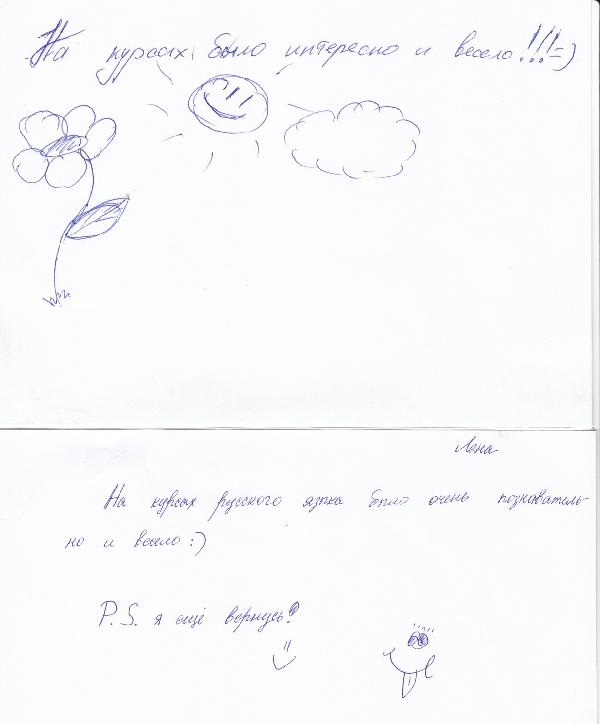 На курсах было интересно и весело!!!=)
Лена
На курсах русского языка было очень познаватель-
но и весело :)
P.S. я ещё вернусь!